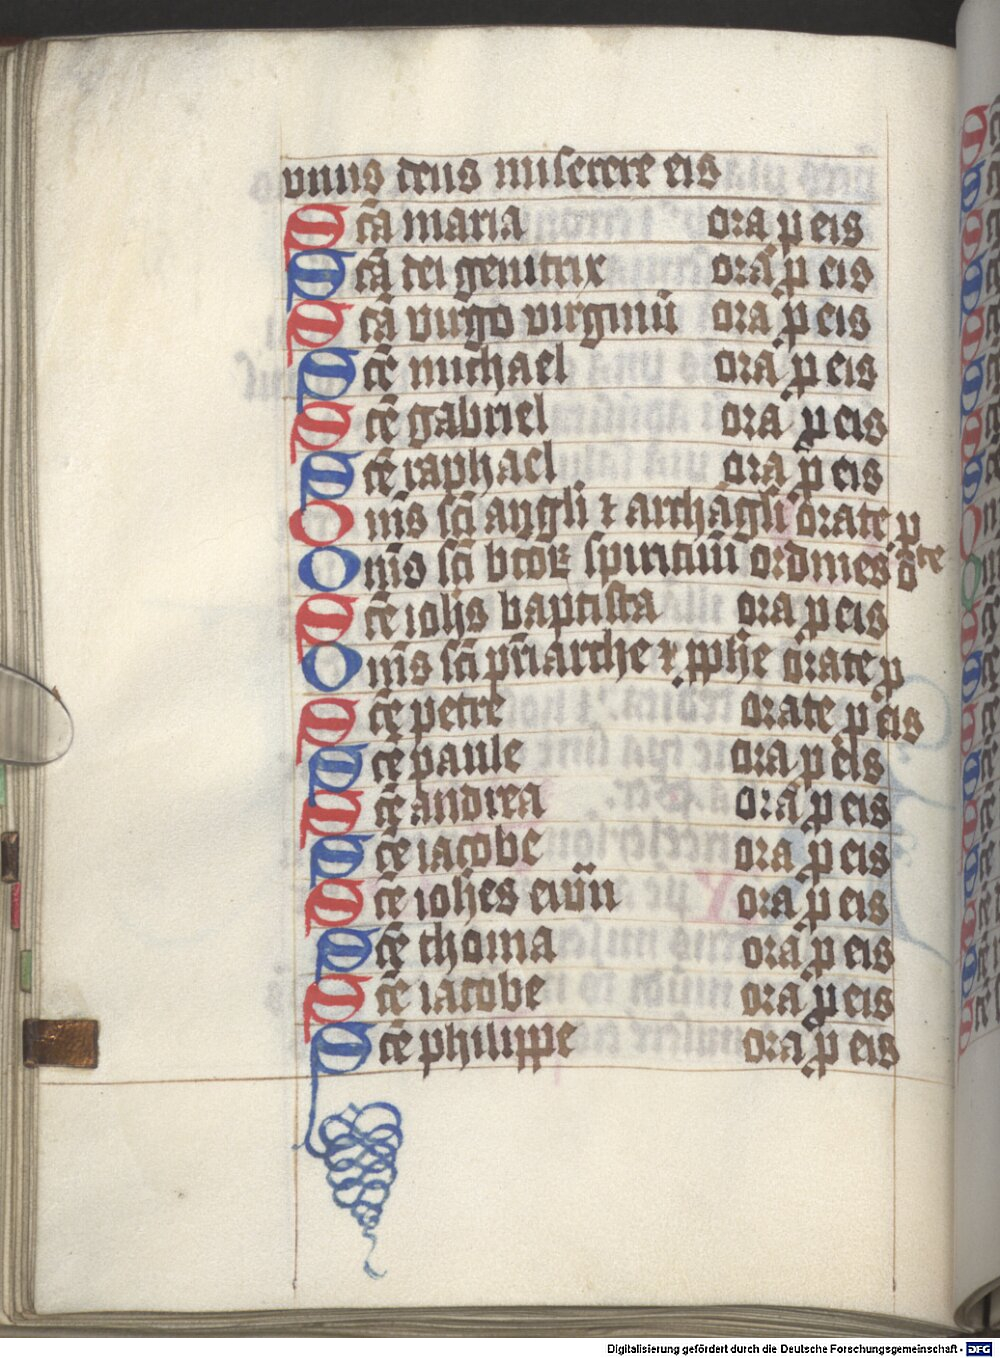 vnus deus miserere eis
Scã maria ora ꝓ eis
Scã dei genitrix ora ꝓ eis
Scã virgo virginũ ora ꝓ eis
Scẽ michael ora ꝓ eis
Scẽ gabriel ora ꝓ eis
Scẽ raphael ora ꝓ eis
Om̃s sc̃i angli ⁊ archãgli orate ꝓ
Om̃s sc̃i btoꝝ spirituũ ordines o te
Scẽ ioh̃s baptista ora ꝓ eis
Om̃s sc̃i pr̃iarche ⁊ ꝓph̃e orate ꝓ
Scẽ petre orate ꝓ eis
Scẽ paule ora ꝓ eis
Scẽ andrea ora ꝓ eis
Scẽ iacobe ora ꝓ eis
Scẽ ioh̃es ewñ ora ꝓ eis
Scẽ thoma ora ꝓ eis
Scẽ iacobe ora ꝓ eis
Scẽ philippe ora ꝓ eis
Digitalisierung gefördert durch die Deutsche Forschungsgemeinschaft - DFG